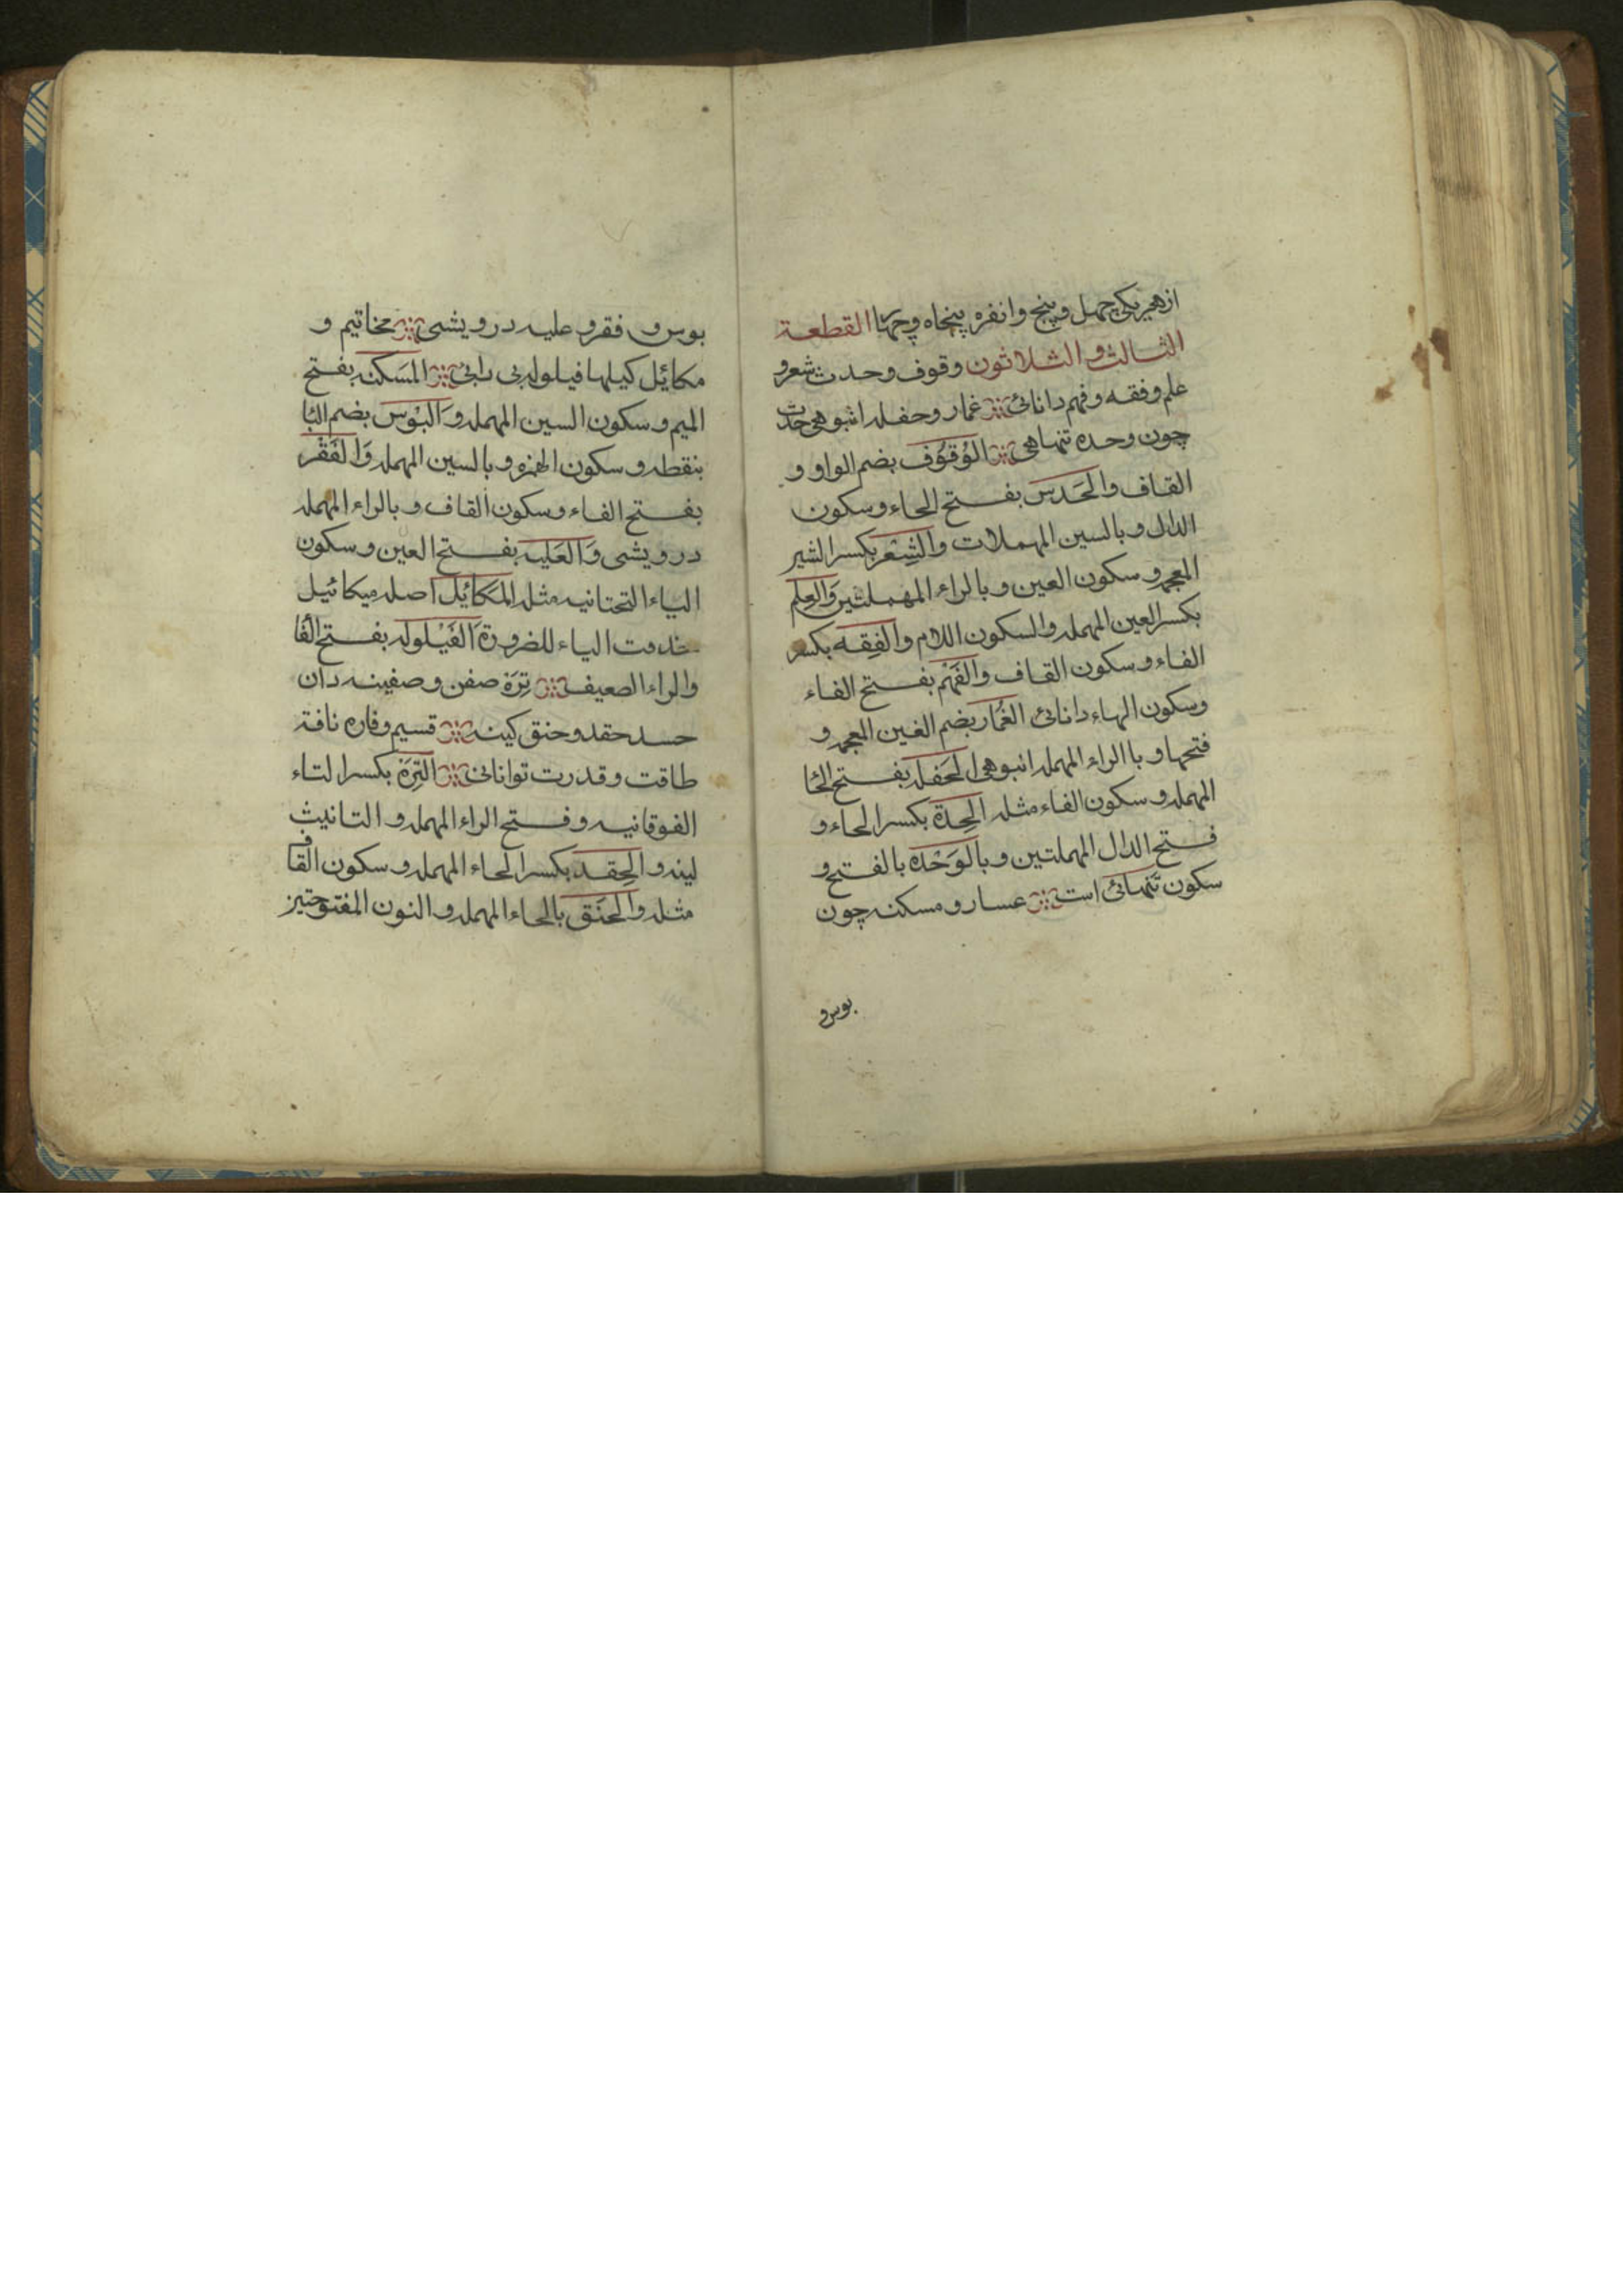 از هجر یکی چهل و پنج وانفره پنجاه و چهار القطعة
الثالث و الثلاثون وقوف و حدث شعر و
علم و فقه و فهم دانائی غمار و حفله انبوهی حدت
چون وحده تنهاهی الوُقوُف بضم الواو و
القاف والحَدَس بفتح الحاء و سکون
الدال و بالسین المهملات والشِعْر بکسر الشیر
المعجمه و سکون العین و بالراء المهملتین وَالعِلم
بکسر العین المهمله والسکون اللام والفِقه بکسر
الفاء و سکون القاف والفَهْم بفتح الفاء
وسکون الهاء دانائی الغُمار بضم الغین المعجمه و
فتحها و باالراء المهمله انبوهی الحَفله بفتح الحا
المهمله و سکون الفاء مثله الحِدة بکسر الحاء و
فتح الدال المهملتین و بالوَحْده بالفتح و
سکون تنهائی است عسار و مسکنه چون
بوس و
بوس و فقر و علیه درویشی مخاتیم و
مکائل کیلها فیلوله بی رایی المَسکنه بفتح
المیم و سکون السین المهمله وَالبُوْس بضم البا
بنقطه و سکون الهمزه و بالسین المهمله وَالفَقْر
بفتح الفاء و سکون القاف و بالراء المهمله
درویشی وَالعَلیه بفتح العین و سکون
الیاء التحتانیه مثله المَکائِل اصله میکائیل
خذفت الیاء للضرورة الفَیْلوله بفتح الفا
والراء الصعیف تِرَة صفن و صفینه دان
حسد حقد و حنق کینه قسیم و فاره نافة
طاقت و قدرت توانائی التِرَة بکسر التاء
الفوقانیه و فتح الراء المهمله و التانیث
لینه والحِقد بکسر الحاء المهمله و سکون القاف
مثله والحَنَق بالحاء المهمله و النون المفتوحتیز